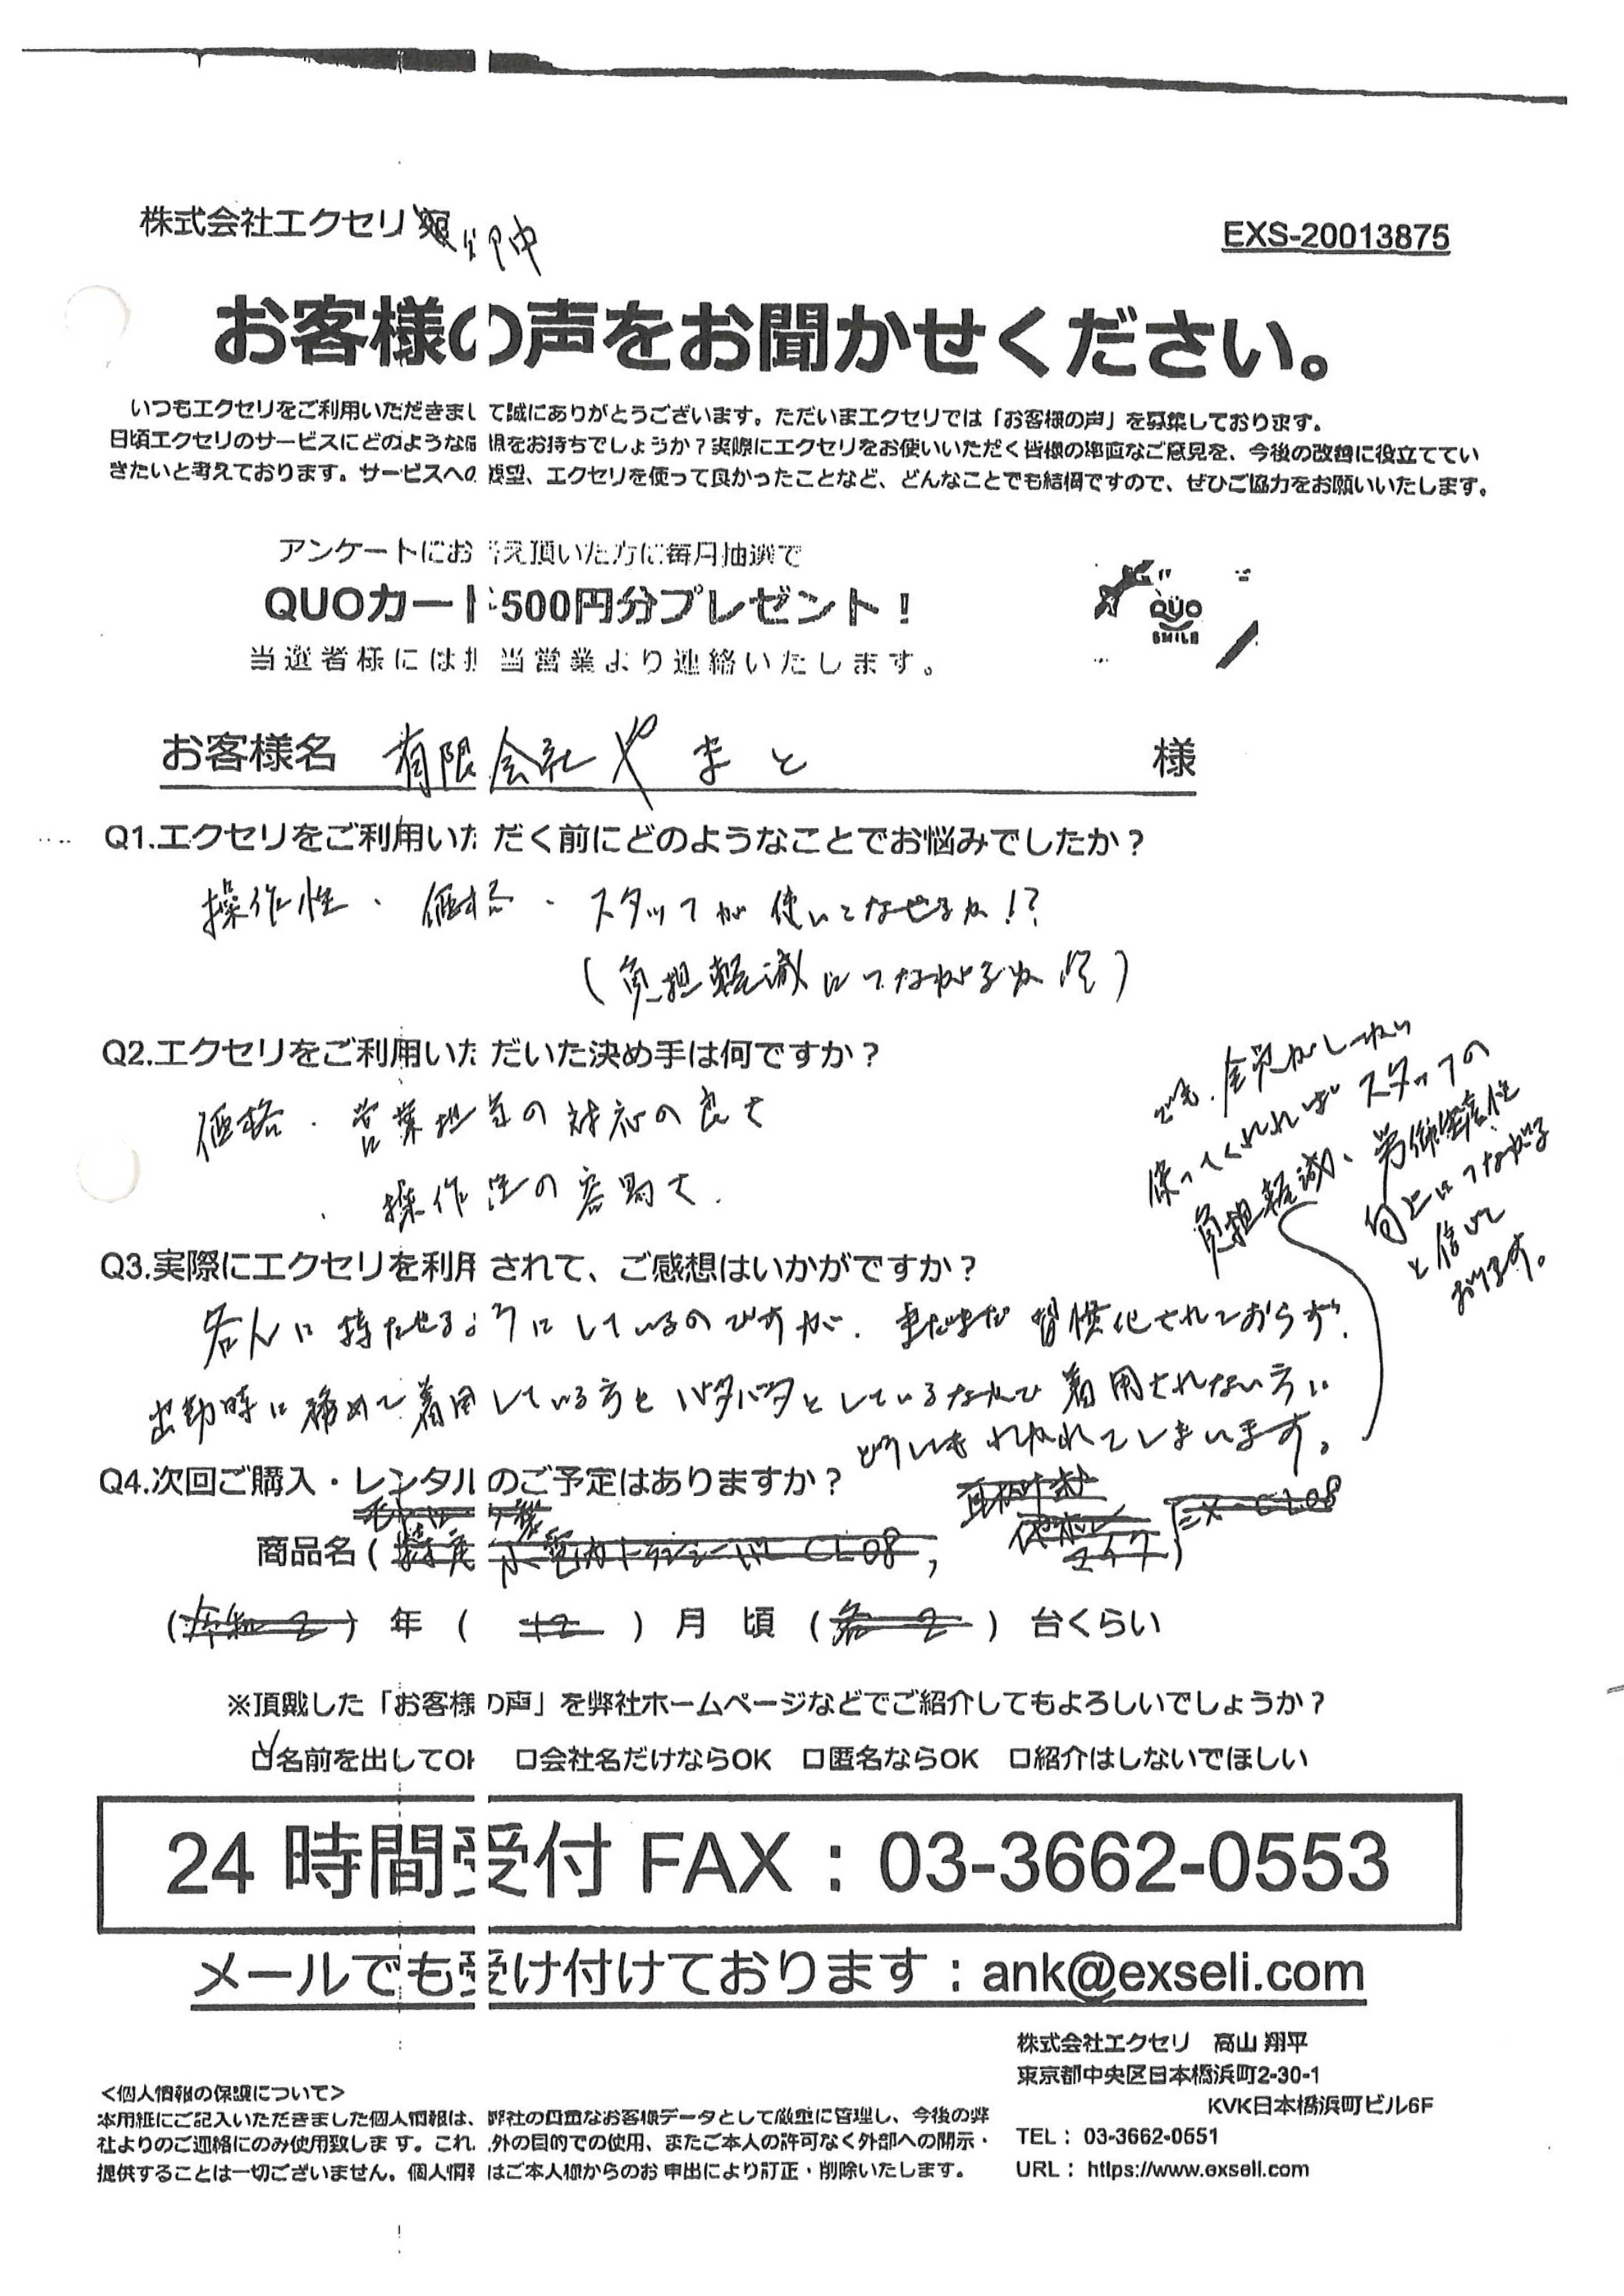 株式会社エクセリ 御中
EXS-20013875
お客様の声をお聞かせください。
いつもエクセリをご利用いただきまして誠にありがとうございます。ただいまエクセリでは「お客様の声」を募集しております。
日頃エクセリのサービスにどのような印象をお持ちでしょうか?実際にエクセリをお使いいただく皆様の率直なご意見を、今後の改善に役立ててい
きたいと考えております。サービスへの要望、エクセリを使って良かったことなど、どんなことでも結構ですので、ぜひご協力をお願いいたします。
アンケートにお答え頂いた方に毎月抽選で
QUOカード500円分プレゼント!
当選者様には担当営業より連絡いたします。
QUO
SMILE
お客様名 有限会社やまと 様
Q1.エクセリをご利用いただく前にどのようなことでお悩みでしたか?
操作性・価格・スタッフが使いこなせるか!?
(負担軽減につながるか!?)
Q2.エクセリをご利用いただいた決め手は何ですか?
価格・営業担当の対応の良さ
・操作性の容易さ
Q3.実際にエクセリを利用されて、ご感想はいかがですか?
各人に持たせるようにしているのですが、まだまだ習慣化されておらず、
出勤時に務めて着用している方とバタバタとしているなかで着用されない方に
どうしてもわかれてしまいます。
でも、全員がしっかり
使ってくれれば スタッフの
負担軽減、労働生産性
向上につながる
と信じて
おります。
Q4.次回ご購入・レンタルのご予定はありますか?
商品名(
)年( )月 頃( )台くらい
※頂戴した「お客様の声」を弊社ホームページなどでご紹介してもよろしいでしょうか?
☑名前を出してOK □会社名だけならOK □匿名ならOK □紹介はしないでほしい
24 時間受付 FAX:03-3662-0553
メールでも受け付けております:ank@exseli.com
株式会社エクセリ 高山 翔平
東京都中央区日本橋浜町2-30-1
KVK日本橋浜町ビル6F
TEL: 03-3662-0551
URL: https://www.exseli.com
<個人情報の保護について>
本用紙にご記入いただきました個人情報は、弊社の貴重なお客様データとして厳重に管理し、今後の弊
社よりのご連絡にのみ使用致します。これ以外の目的での使用、またご本人の許可なく外部への開示・
提供することは一切ございません。個人情報はご本人様からのお申出により訂正・削除いたします。